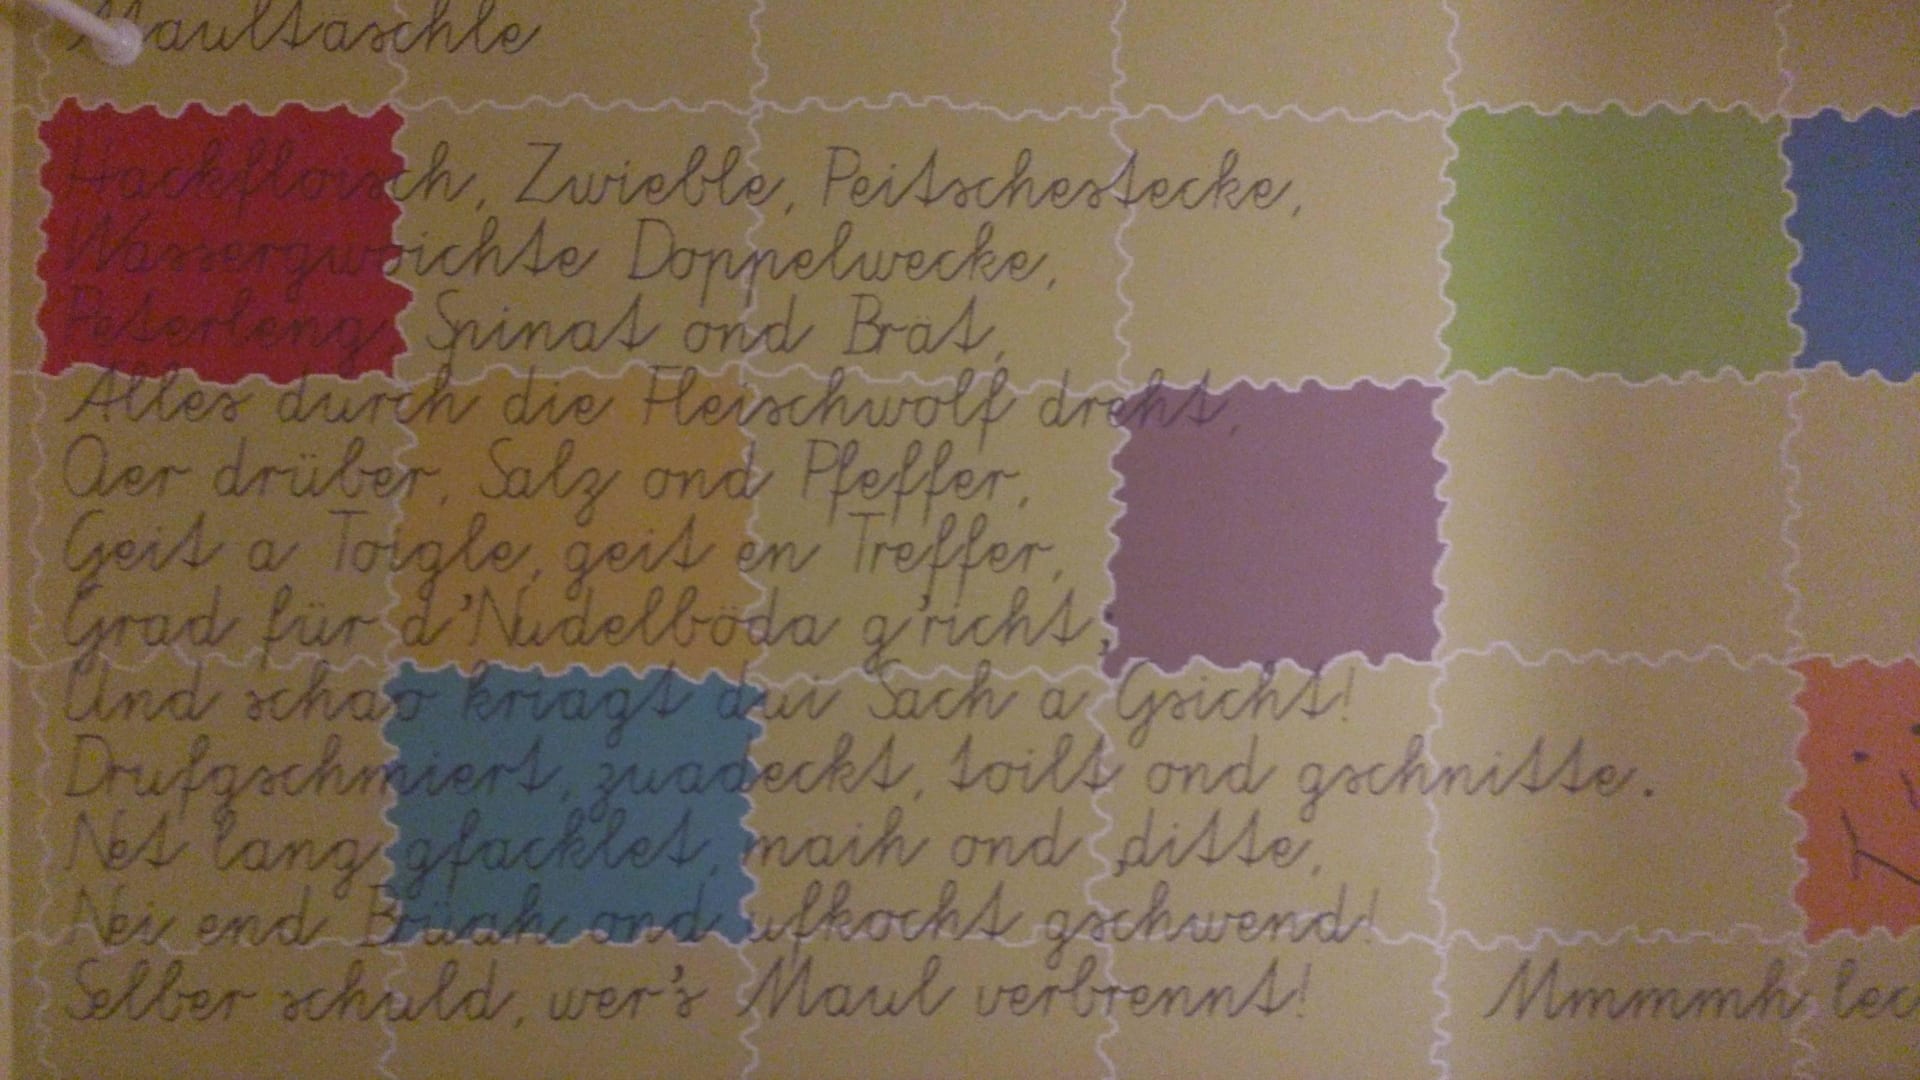 Maultäschle
Hackfloisch, Zwieble, Peitschestecke,
Wassergwoichte Doppelwecke,
Peterleng, Spinat ond Brät,
Alles durch die Fleischwolf dreht,
Oer drüber, Salz ond Pfeffer,
Geit a Toigle, geit en Treffer,
Grad für d'Nudelböda g'richt;
Und schao kriagt dui Sach a Gsicht!
Drufgschmiert, zuadeckt, toilt ond gschnitte.
Net lang gfacklet, maih ond ,ditte,
Nei end Brüah ond ufkocht gschwend!
Selber schuld, wer's Maul verbrennt! Mmmmh lec